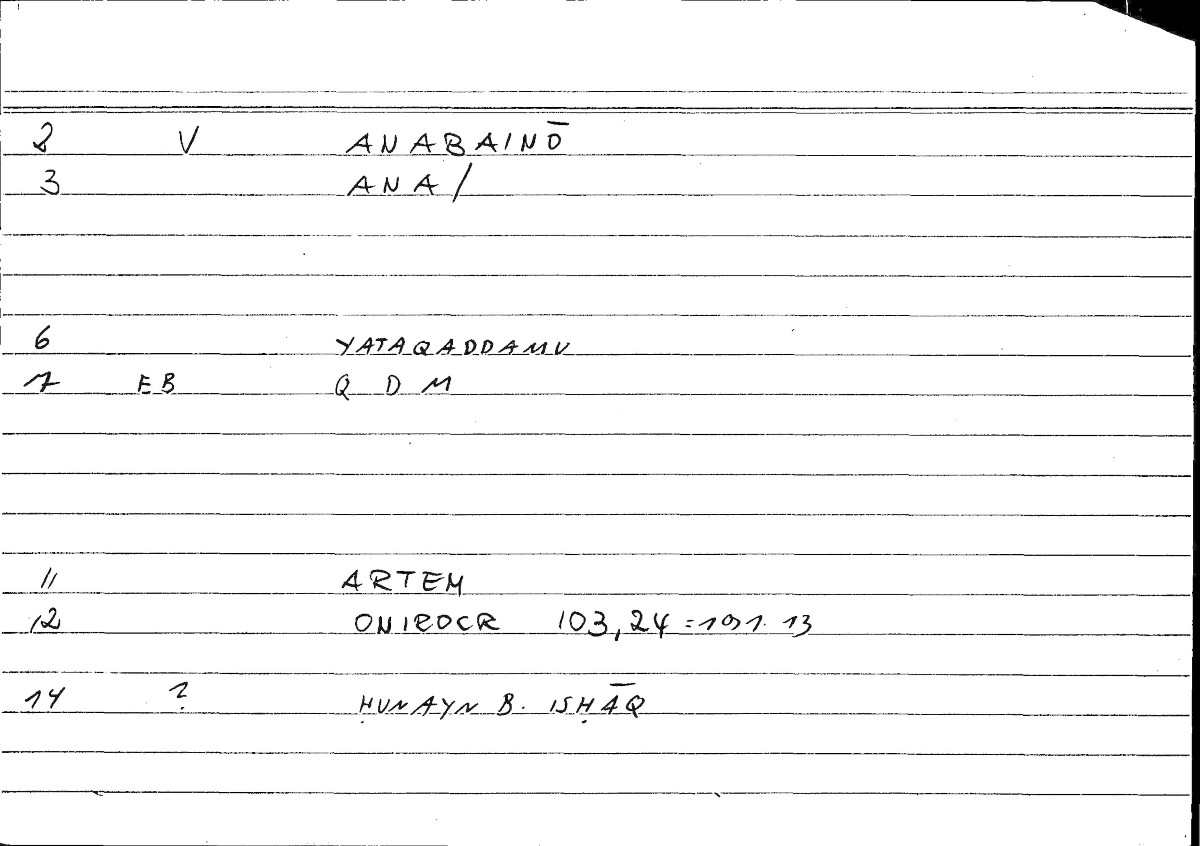 2 V ANABAINŌ
3 ANA/
6 YATAQADDAMU
7 EB Q D M
11 ARTEM
12 ONIROCR 103,24 = 191.13
14 ? ḤUNAYN B. ISḤĀQ